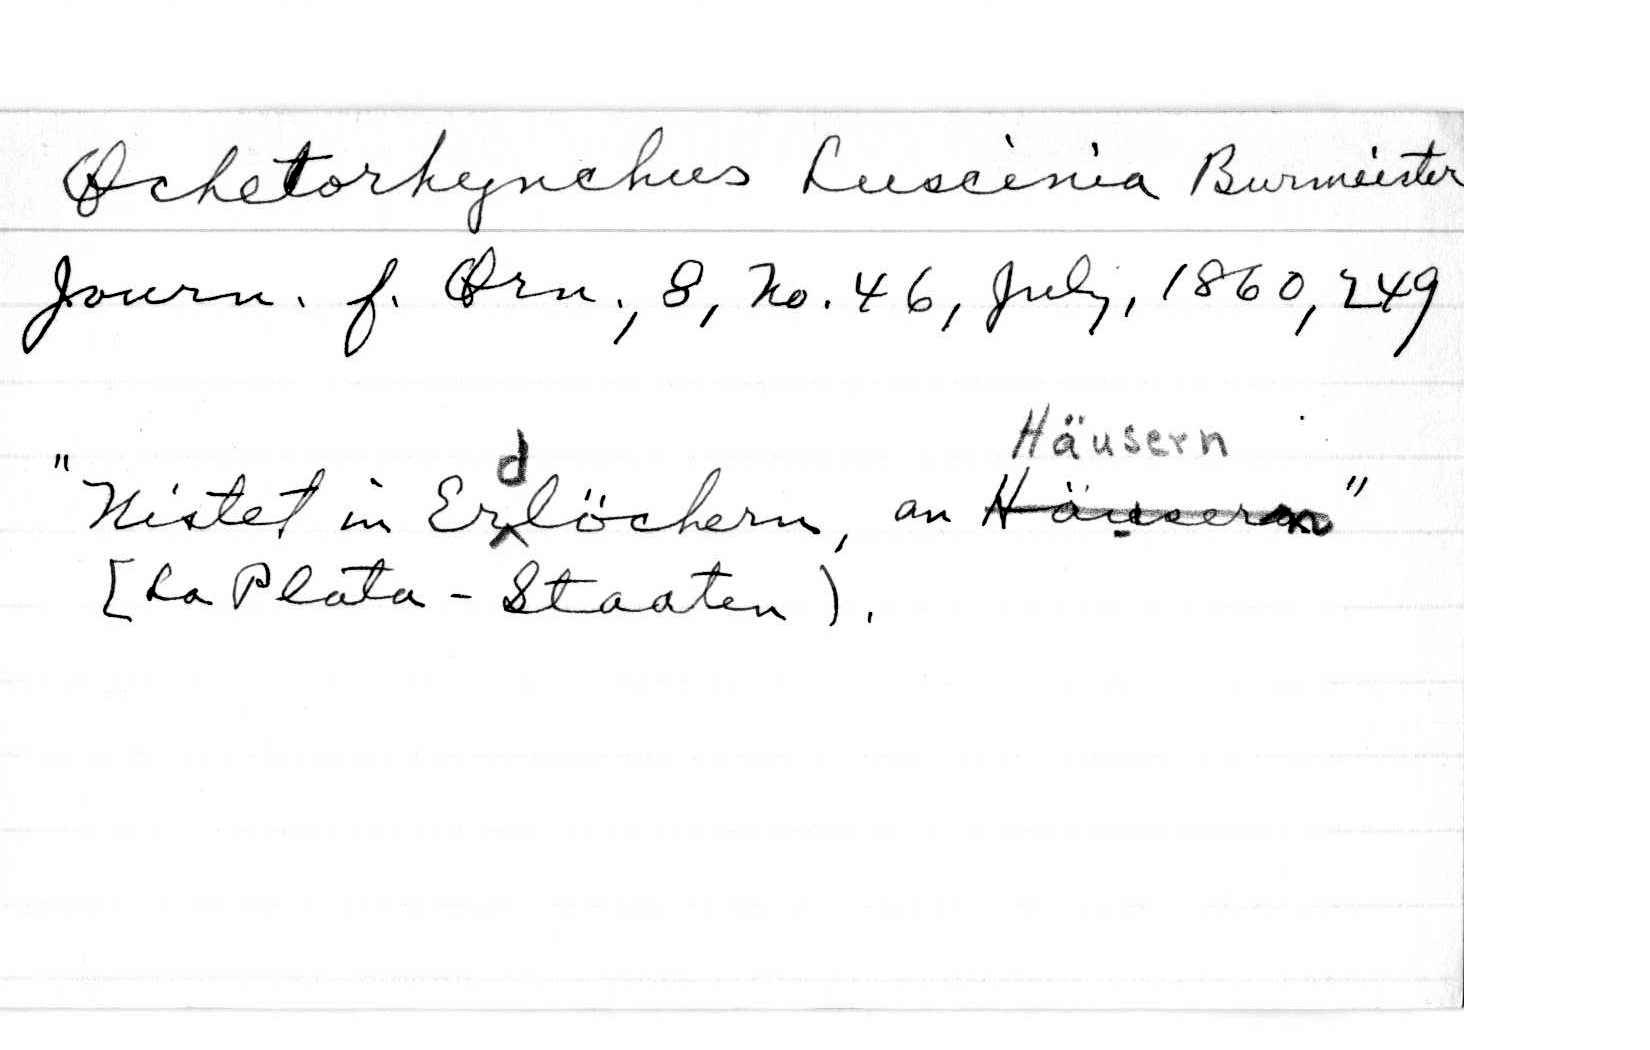 Ochetorhynchus Luscinia Burmeister
Journ. f. Orn., 8, No. 46, July, 1860, 249
"Nistet in Erdlöchern, an Häusern"
[La Plata - Staaten).